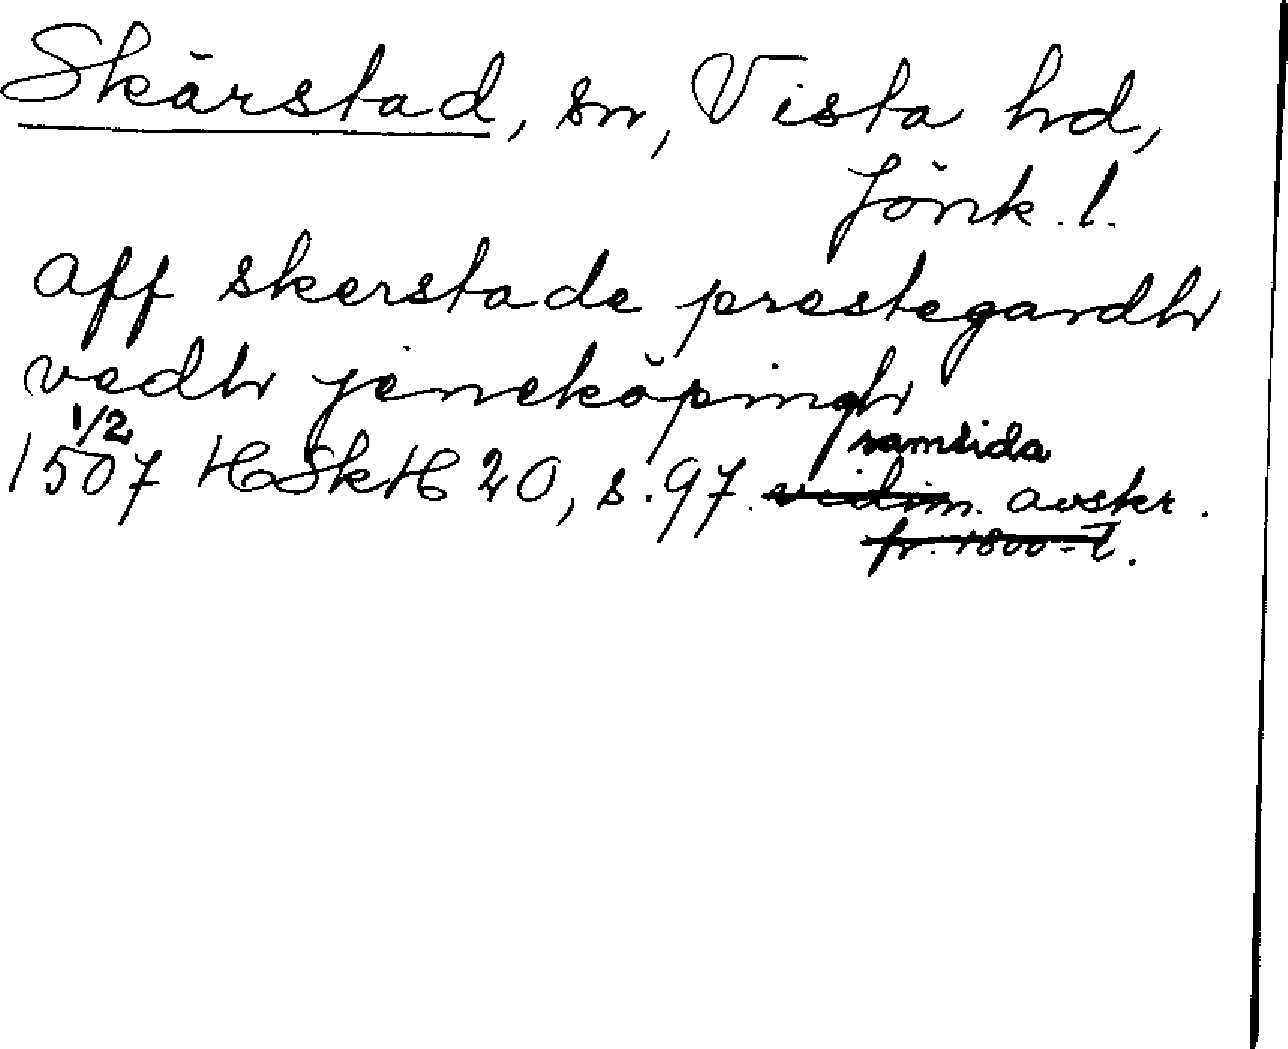 Skärstad, sn, Vista hd,
Jönk. l.
aff skerstade prestegardh
vedh jeneköpingh
1/2
1507 HSkH 20, s. 97. samtida
vidim. avskr.
fr. 1800-t.